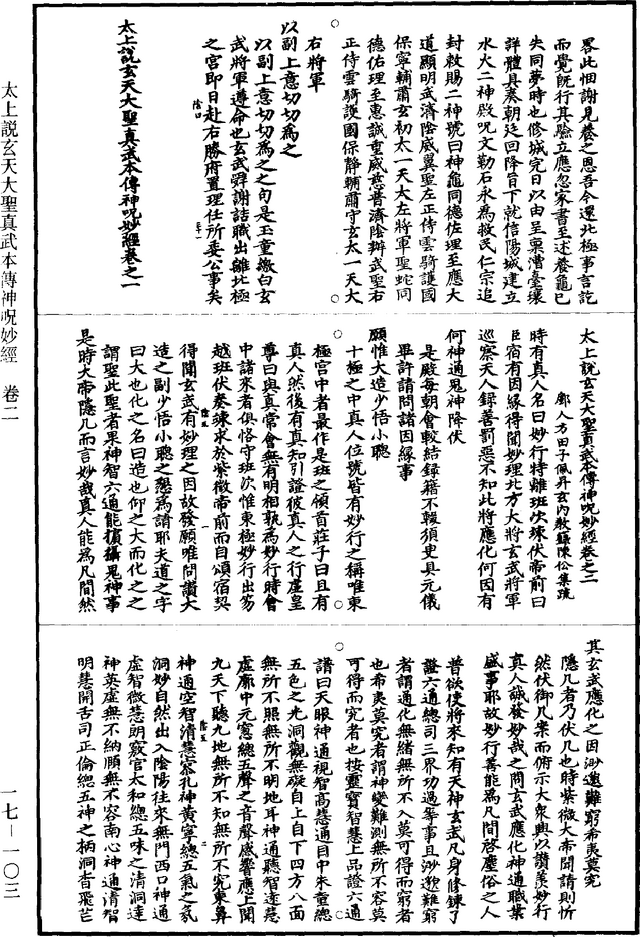 畧此悃謝見養之恩吾今還北極事言訖
而覺旣行其驗立應忽家書至述養龜已
失同夢時也修城完日以由呈稟漕臺壞
詳體具奏朝廷回降旨下就信陽城建立
水火二神殿呪文勒石永為救民仁宗追
封敕賜二神號曰神龜同德佐理至應大
道顯明武濟陰威翼聖左正侍雲騎護國
保寧輔肅玄初太一天大左將軍聖蛇同
德佑理至惠誠重威慈普濟陰辦武聖右
正侍雲騎護國保静輔肅守玄太一天大
右將軍
以副上意切切為之
以副上意切切為之之句是玉童繳白玄
武將軍遵命也玄武舜謝詰職出離北極
之宮即日赴右勝府置理任所委公事矣
太上說玄天大聖真武本傳神呪妙經卷之一
太上說玄天大聖真武本傳神呪妙經卷之二
鄢人方田子佩弁玄内教録陳伀集疏
時有真人名曰妙行特離班次竦伏帝前曰
臣宿有因緣得聞妙理北方大將玄武將軍
巡察天人録善罰惡不知此將應化何因有
何神通鬼神降伏
是殿每朝會較結録籍不輟須叟具元儀
畢許請問諸因緣事
願惟大造少悟小聰
十極之中真人位號皆有妙行之稱唯東
極宮中者最作是班之領首莊子曰且有
真人然後有真知引證彼真人之行虛皇
尊曰與真常會無有明相孰為妙行時會
中諸來者俱恪守班次惟東極妙行出笏
越班伏奏竦求於紫微帝前而自頌宿契
得聞玄武有妙理之因故發願唯問讚大
造之副少悟小聰之懇為請耶夫道之字
曰大也化之名曰造也仰之大而化之之
謂聖此聖者果神智六通能損攝鬼神事
是時大帝隱几而言妙哉真人能為凡間然
其玄武應化之因沙邈難窮希夷莫究
隱几者乃伏几也時紫微大帝聞請則忻
然伏御几案而俯示大衆與以讚羨妙行
真人誠發妙哉之問玄武應化神通職業
盛事耶故妙行善能為凡間啓塵俗之人
普欲使將來知有天神玄武凡身修鍊了
證六通總司三界功過等事且沙邈難窮
者謂通化無緒無所不入莫可得而窮者
也希夷莫究者謂神變難測無所不容莫
可得而究者也按靈寶智慧上品證六通
譜曰天眼神通視智高慧通目中朱童總
五色之光洞觀無礙自上自下四方八面
無所不照無所不明地耳神通聽智遼慧
虛廓中元窓總五聲之音聲感響應上聞
九天下聽九地無所不知無所不究東鼻
神通空智清慧寥孔神黃寧總五氣之氛
洞妙自然出入陰陽往來無門西口神通
虛智微慧朗竅官太和總五味之清洞達
神英虛無不納順無不容南心神通清智
明慧開舌司正倫總五神之柄洞杳飛芒
太上說玄天大聖真武本傳神呪妙經　卷二
一七—一〇三